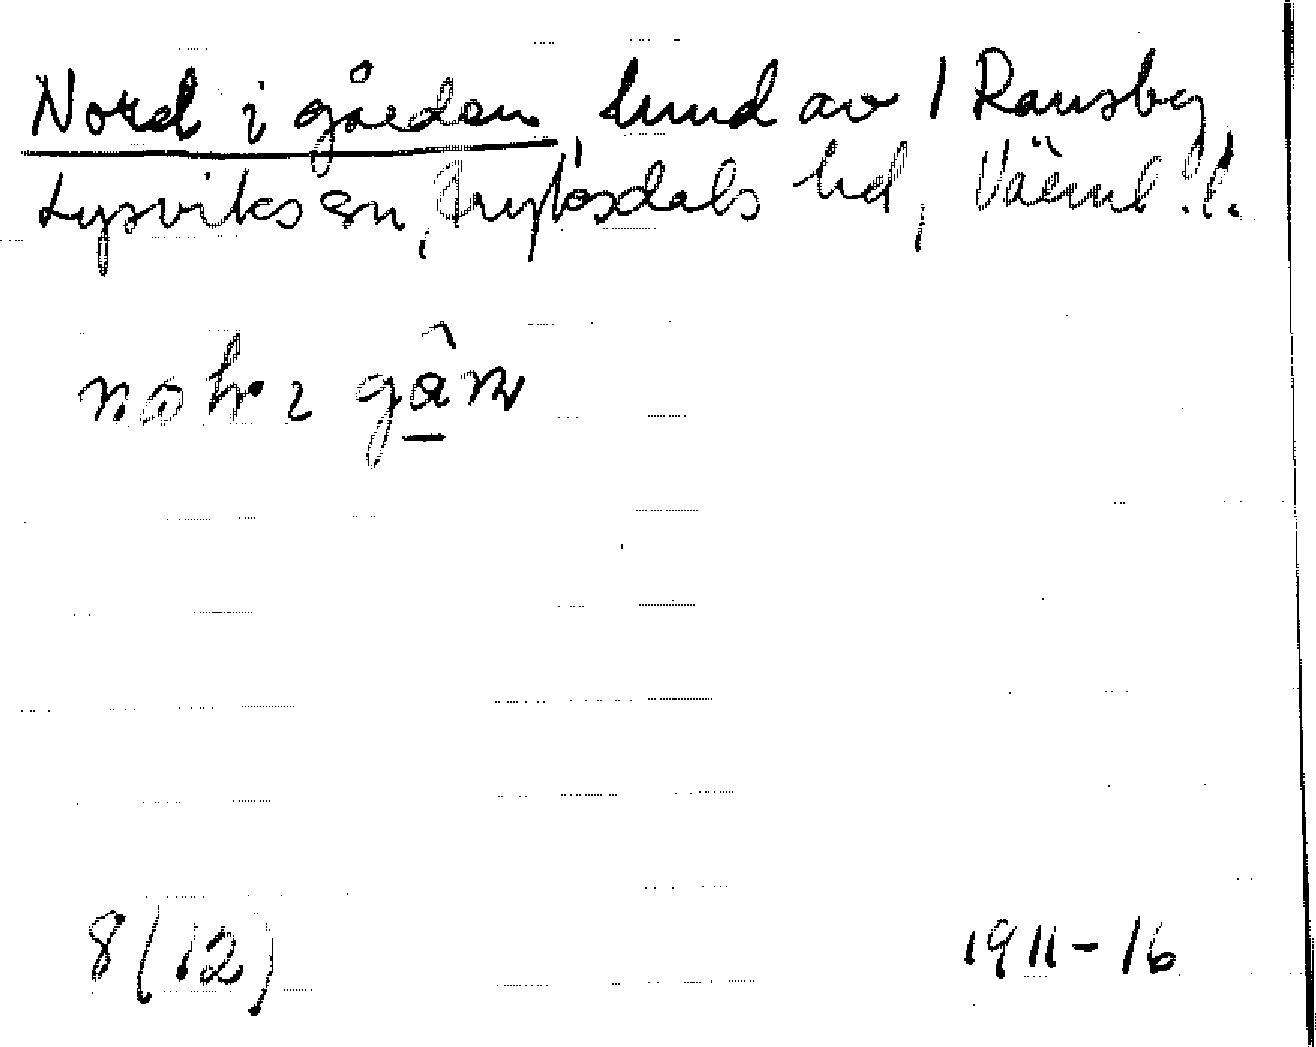 Nord i gården, hmd av 1 Ransby,
Lysviks sn, Fryksdals hd, Värml. l.
8(12)
1911-16